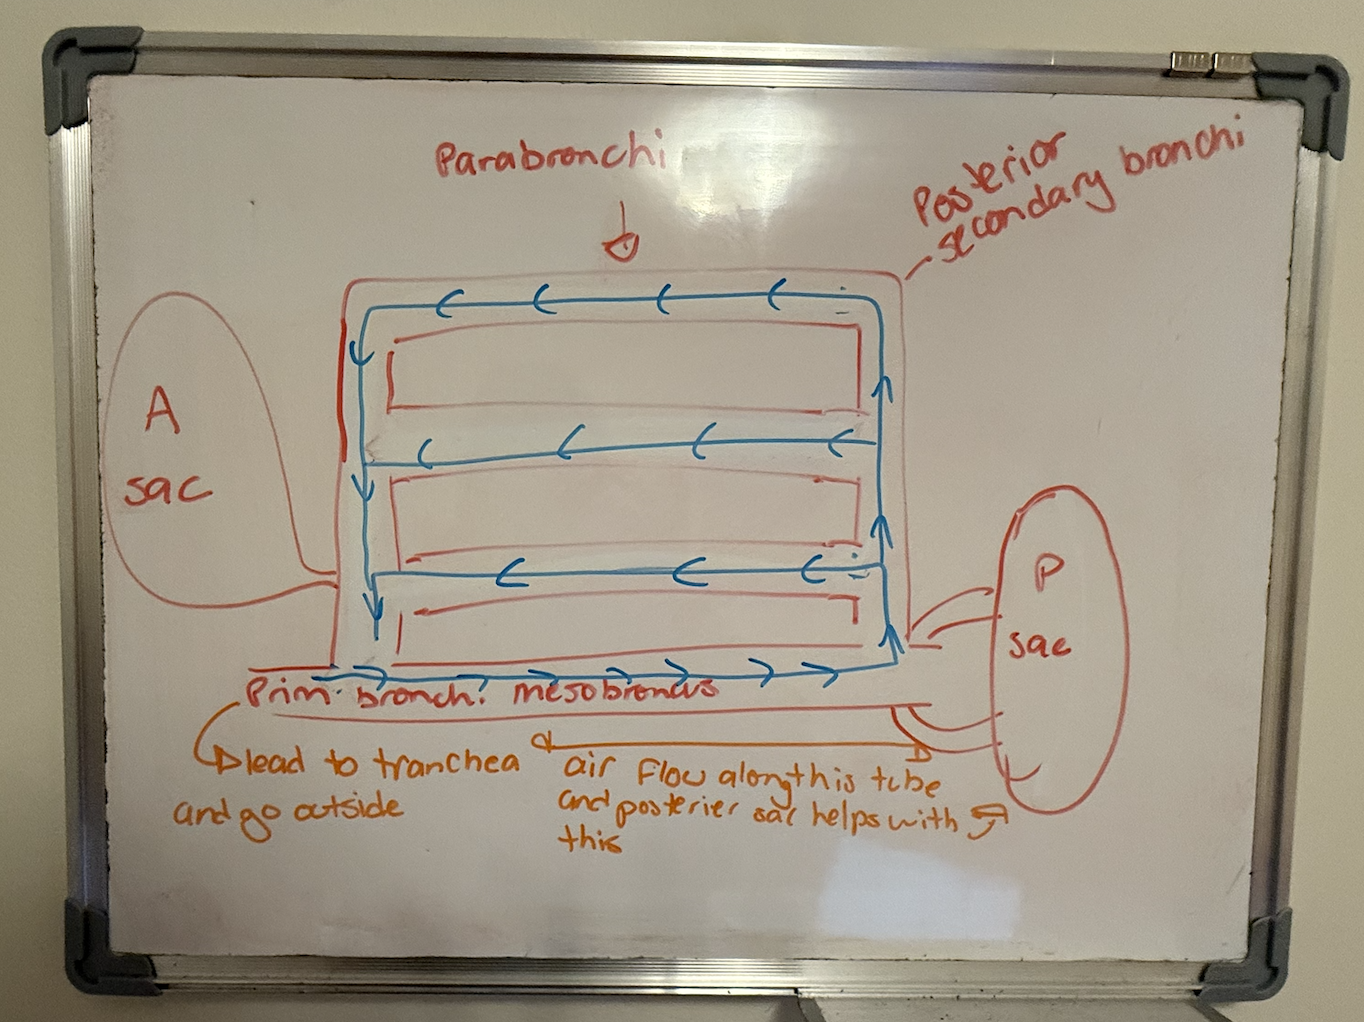 Parabronchi
Posterior
secondary bronchi
A
sac
P
sac
Prim. bronch. mesobroncus
lead to tranchea
and go outside
air flow along this tube
and posterier sac helps with
this